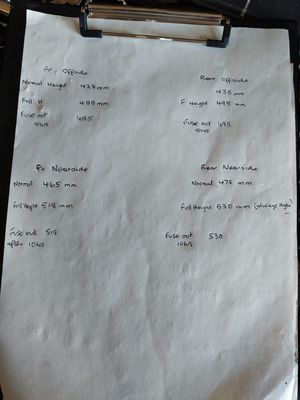 Fr, Offside
Normal Height 428 mm
Full H 485 mm
Fuse out 485
10hrs
Rear Offside
435 mm
F Height 495 mm
Fuse out 495
10hrs
Fr Nearside
Normal 465 mm
Full Height 518 mm
Fuse out 515
after 10hrs
Rear Nearside
Normal 475 mm
Full Height 530 mm (always higher)
Fuse out 530
10hrs